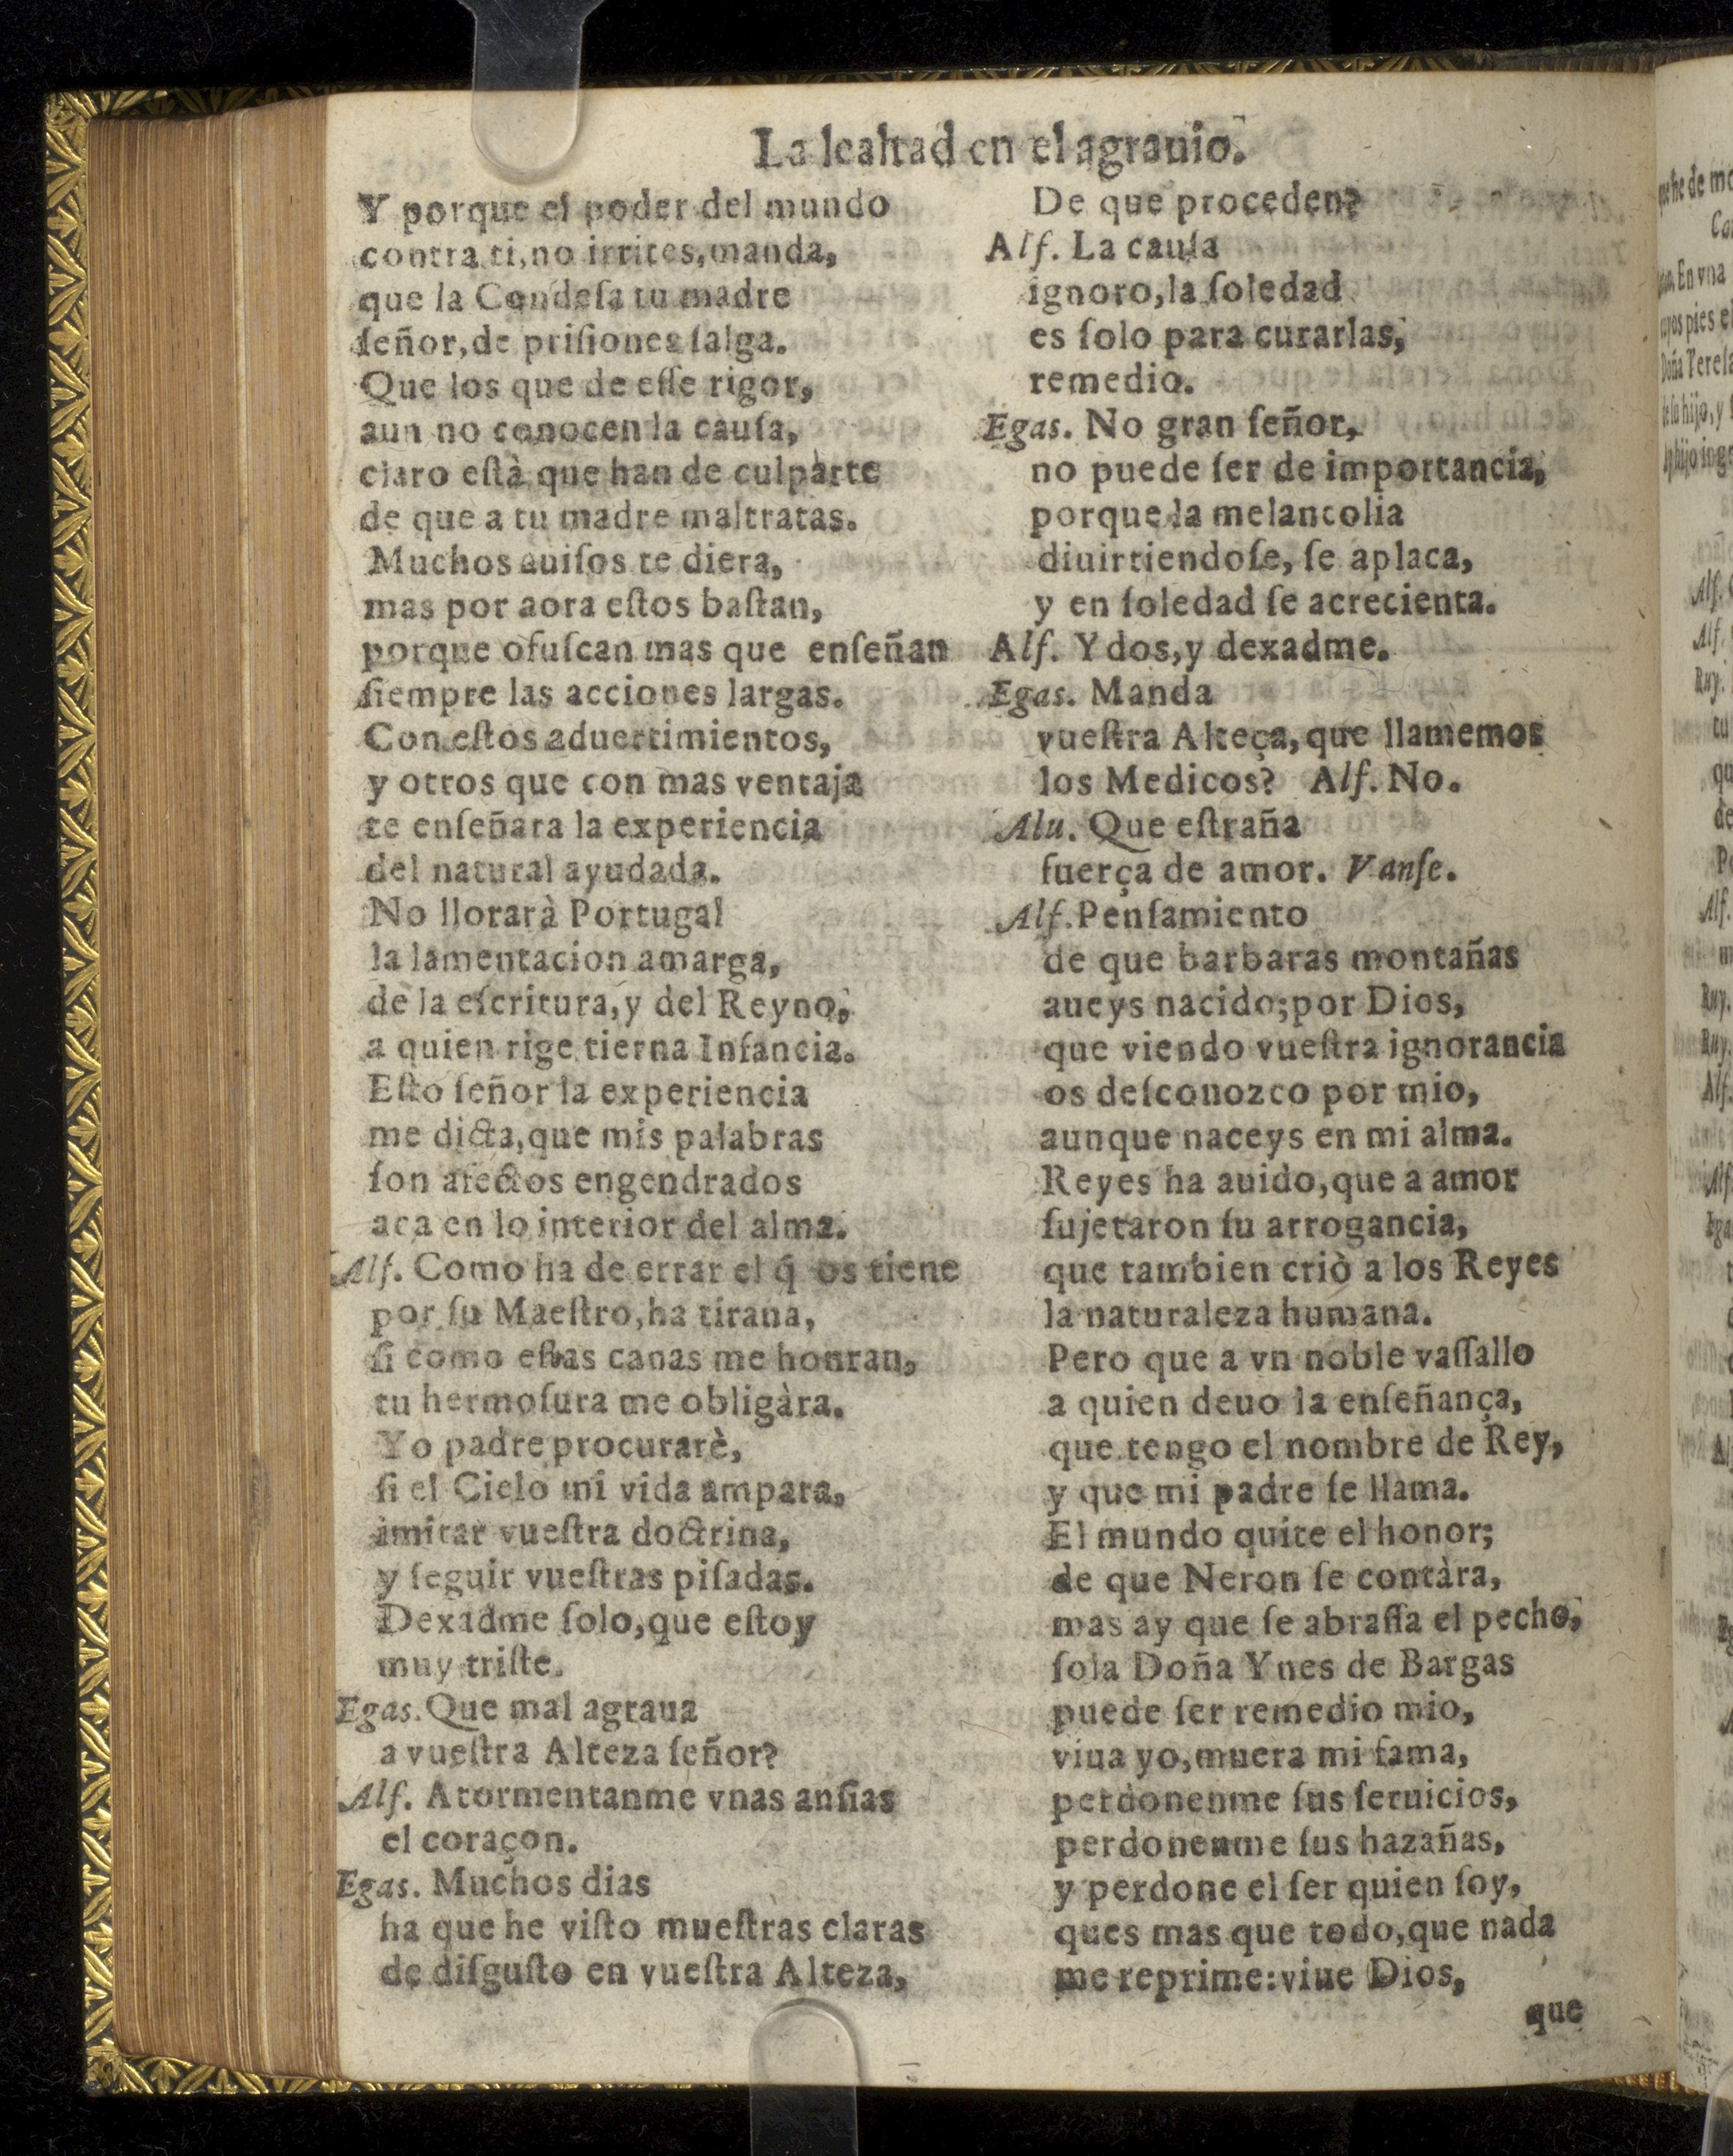 La lealtad en el agrauio.
Y porque el poder del mundo
contra ti, no irrites, manda,
que la Condeſa tu madre
ſeñor, de priſiones ſalga.
Que los que de eſſe rigor,
aun no conocen la cauſa,
claro eſtà que han de culparte
de que a tu madre maltratas.
Muchos auiſos te diera,
mas por aora eſtos baſtan,
porque ofuſcan mas que enſeñan
ſiempre las acciones largas.
Con eſtos aduertimientos,
y otros que con mas ventaja
te enſeñara la experiencia
del natural ayudada.
No llorarà Portugal
la lamentacion amarga,
de la eſcritura, y del Reyno,
a quien rige tierna Infancia.
Eſto ſeñor la experiencia
me dicta, que mis palabras
ſon afectos engendrados
aca en lo interior del alma.
Alf. Como ha de errar el q̃ os tiene
por ſu Maeſtro, ha tirana,
ſi como eſtas canas me honran,
tu hermoſura me obligàra.
Yo padre procurarè,
ſi el Cielo mi vida ampara,
imitar vueſtra doctrina,
y ſeguir vueſtras piſadas.
Dexadme ſolo, que eſtoy
muy triſte.
Egas. Que mal agraua
a vueſtra Alteza ſeñor?
Alf. Atormentanme vnas anſias
el coraçon.
Egas. Muchos dias
ha que he viſto mueſtras claras
de diſguſto en vueſtra Alteza,
De que proceden?
Alf. La cauſa
ignoro, la ſoledad
es ſolo para curarlas,
remedio.
Egas. No gran ſeñor,
no puede ſer de importancia,
porque la melancolia
diuirtiendoſe, ſe aplaca,
y en ſoledad ſe acrecienta.
Alf. Ydos, y dexadme.
Egas. Manda
vueſtra Alteça, que llamemos
los Medicos? Alf. No.
Alu. Que eſtraña
fuerça de amor. Vanſe.
Alf. Penſamiento
de que barbaras montañas
aueys nacido; por Dios,
que viendo vueſtra ignorancia
os deſconozco por mio,
aunque naceys en mi alma.
Reyes ha auido, que a amor
ſujetaron ſu arrogancia,
que tambien criò a los Reyes
la naturaleza humana.
Pero que a vn noble vaſſallo
a quien deuo la enſeñança,
que tengo el nombre de Rey,
y que mi padre ſe llama.
El mundo quite el honor;
de que Neron ſe contàra,
mas ay que ſe abraſſa el pecho,
ſola Doña Ynes de Bargas
puede ſer remedio mio,
viua yo, muera mi fama,
perdonenme ſus ſeruicios,
perdonenme ſus hazañas,
y perdone el ſer quien ſoy,
ques mas que todo, que nada
me reprime: viue Dios,
que